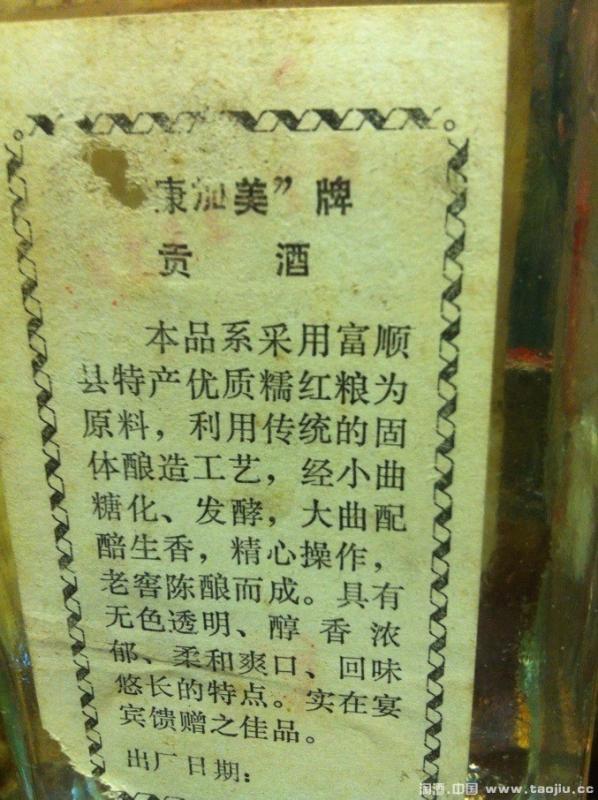 康加美”牌
贡 酒
本品系采用富顺
县特产优质糯红粮为
原料，利用传统的固
体酿造工艺，经小曲
糖化、发酵，大曲配
醅生香，精心操作，
老窖陈酿而成。具有
无色透明、醇香浓
郁、柔和爽口、回味
悠长的特点。实在宴
宾馈赠之佳品。
出厂日期：
淘酒.中国 www.taojiu.cc